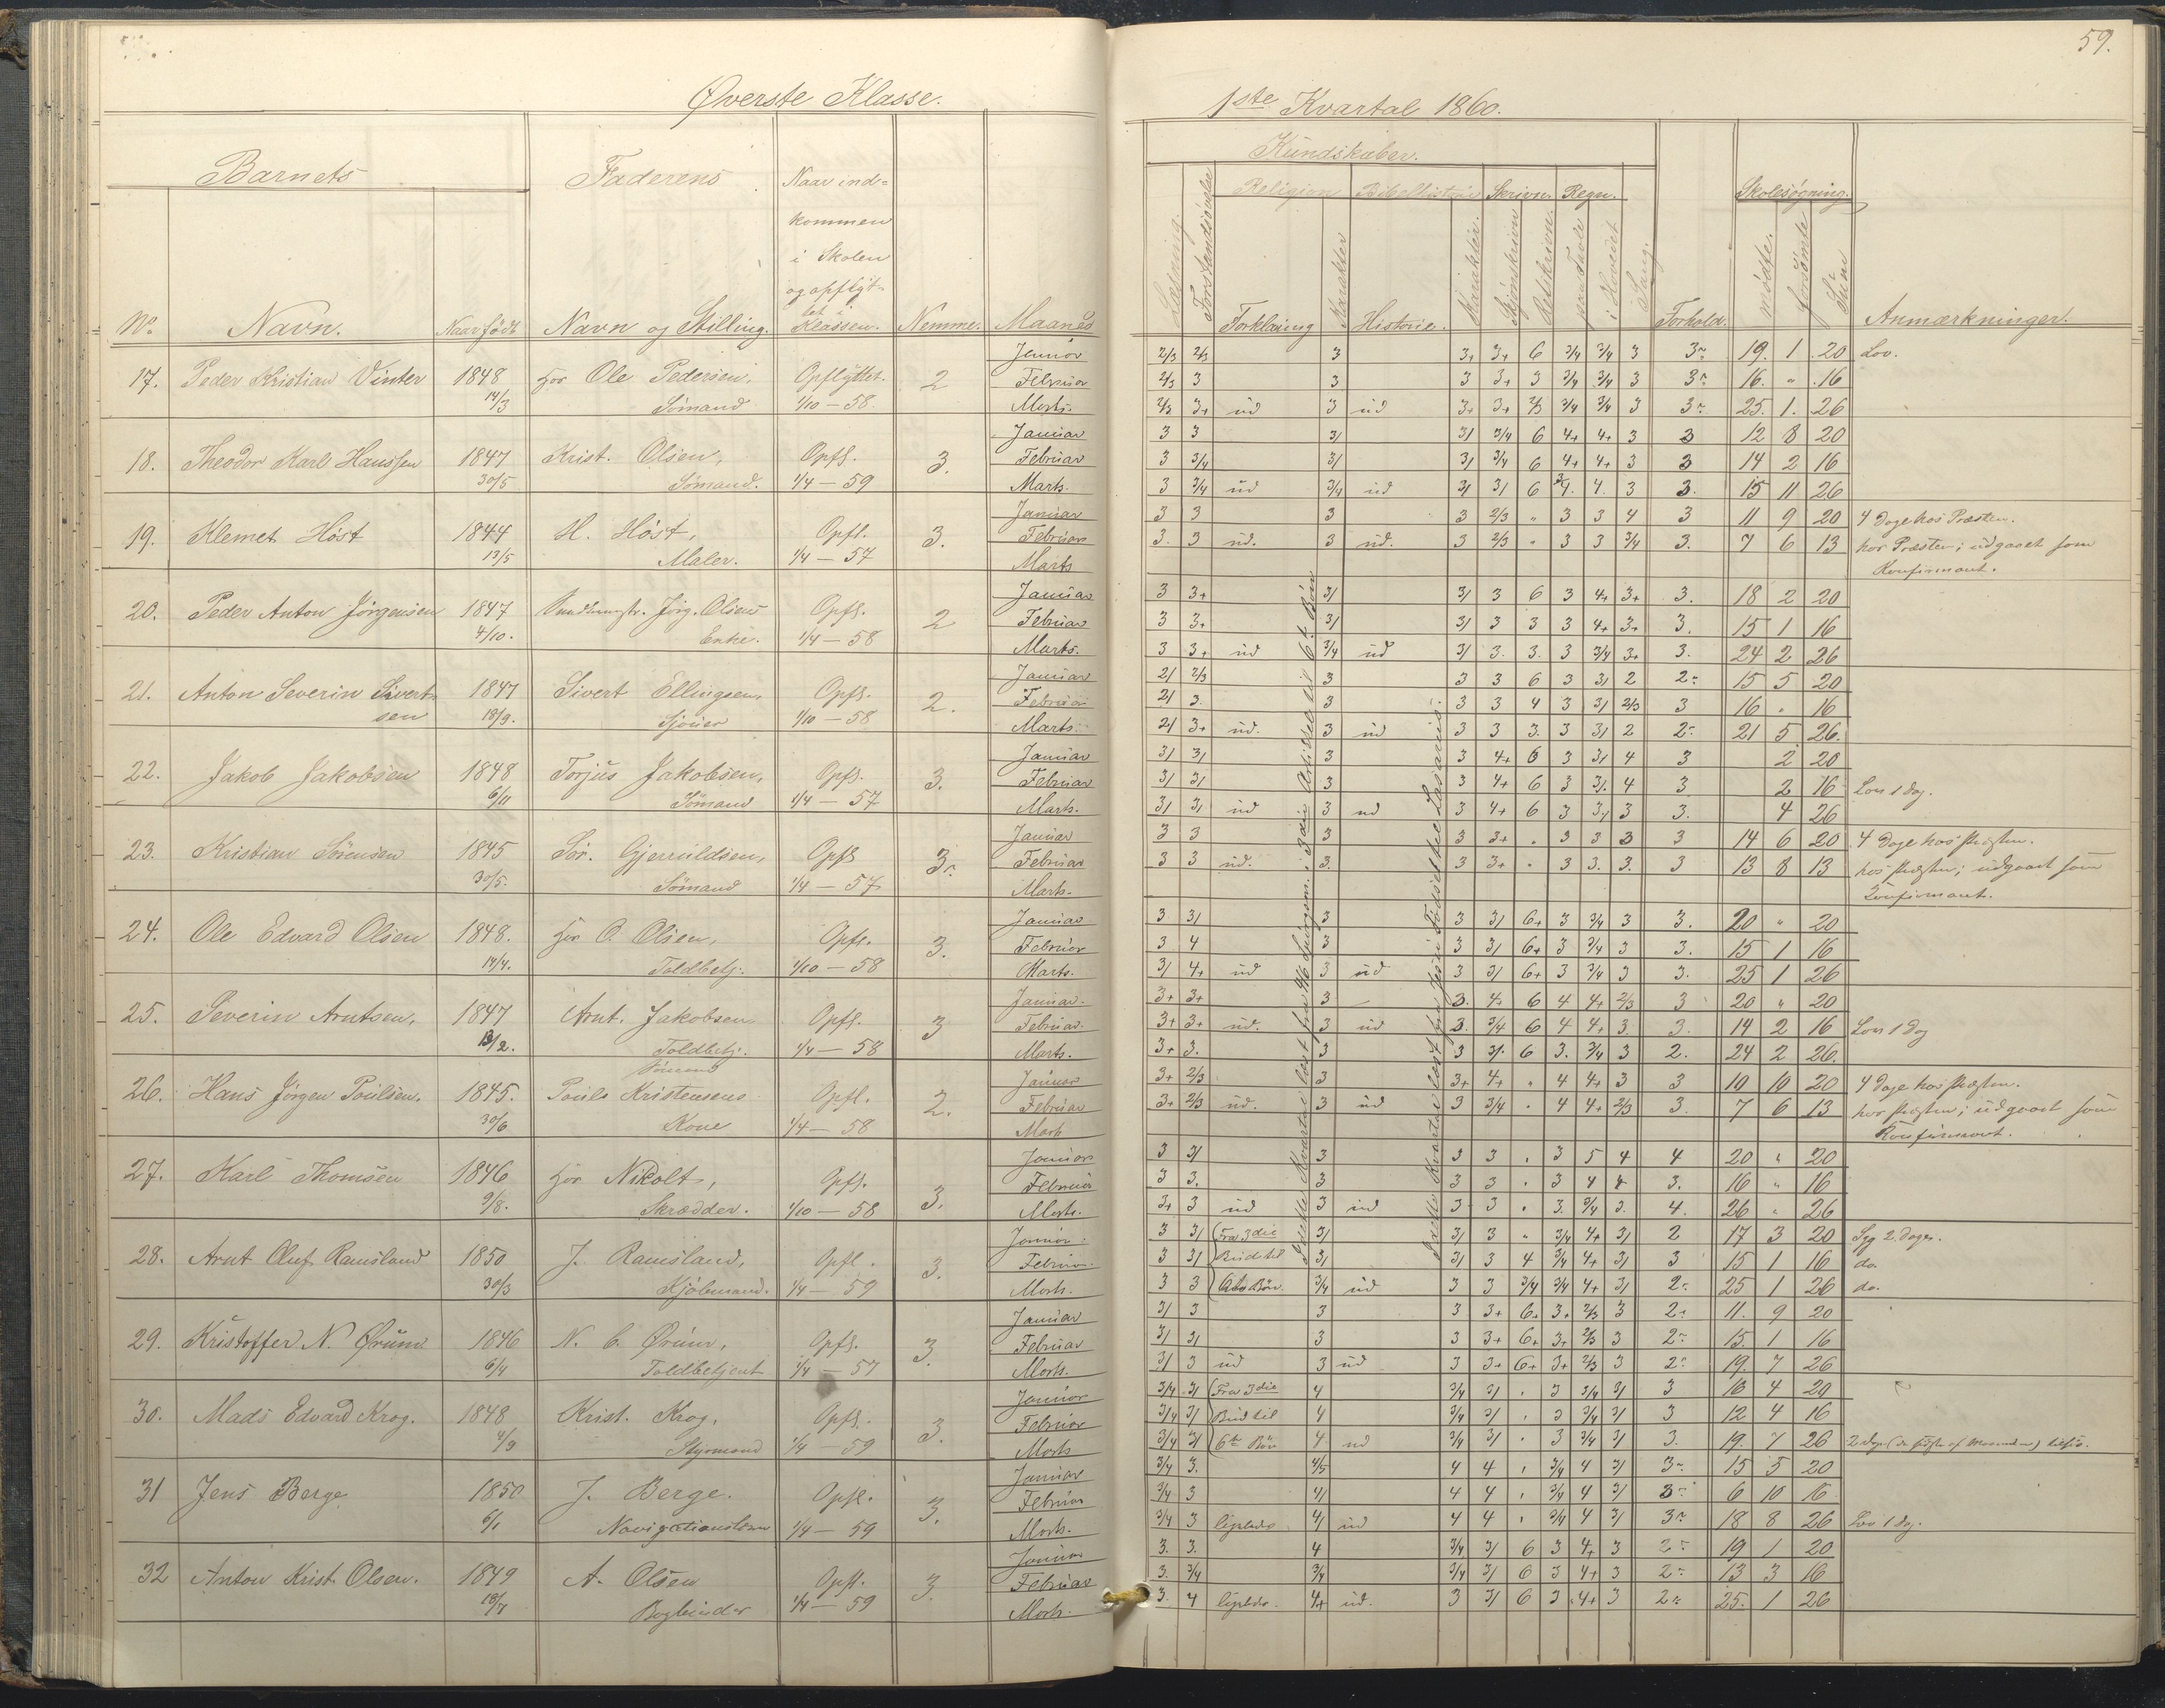 59.
Øverste Klasse.
1ste Kvartal 1860.
Barnets
Faderens
Naar ind-
kommen
i Skolen
og opflyt-
tet i
Klassen.
No
Navn.
Naar født
Navn og Stilling.
Nemme.
Maaned
Kundskaber.
Religion Bibelhistorie Skrivn. Regn.
Skolesøgning.
Læsning.
Forstandsøvelse
Forklaring
Karakter
Historie.
Karakter.
Skjønskrivn
Retskrivn.
paa Tavle
i Hovedet
Sang.
Forhold.
mødte.
forsømte
Sum
Anmærkninger.
17. Peder Kristian Vinter 1848 14/3 hos Ole Pedersen, Sømand Opflyttet. 1/10 – 58. 2
Januar 2/3 2/3 3 3+ 3+ 6 3/4 3/4 3 3- 19. 1 20 Lov.
Februar 2/3 3 3 3 3+ 3 3/4 3/4 3 3- 16. " 16
Marts. 2/3 3+ ud 3 ud 3+ 3+ 2/3 3/4 3/4 3 3- 25. 1. 26
18. Theodor Karl Hanssen 1847 30/5 Krist. Olsen, Sømand. Opfl. 1/4 – 59 3.
Januar 3 3 3/ 3/ 3/4 6 4+ 4+ 3 3 12 8 20
Februar 3 3/4 3/ 3/ 3/4 6 4+ 4+ 3 3 14 2 16
Marts. 3 3/4 ud 3/4 ud 3/ 3/ 6 4. 3 3. 15 11 26
19. Klemet Høst 1844 13/5 H. Høst, Maler. Opfl. 1/4 – 57 3.
Januar 3 3 3 3 2/3 " 3 3 4 3 11 9 20 4 Dage hos Præsten.
Februar 3. 3 ud. 3 ud. 3 2/3 " 3 3 3/4 3. 7 6 13 hos Præsten; udgaaet som
Marts Konfirmant.
20. Peder Anton Jørgensen 1847 4/10. Jørg. Olsens Enke. Opfl. 1/4 – 58 2
Januar 3 3+ 3/ 3/ 3 6 3 4+ 3+ 3. 18 2 20
Februar 3 3+ 3/ 3/ 3 3 3 4+ 3+ 3. 15 1 16
Marts. 3 3+ ud 3/4 ud 3/ 3. 3. 3 3/4 3+ 3. 24 2 26
21. Anton Severin Sivertsen 1847 18/9. Sivert Ellingsen, Sjouer Opfl. 1/10 – 58 2.
Januar 2/ 2/3 3 3 3 6 3 3/ 2 2- 15 5 20
Februar 2/ 3. 3 3 3 4 3 3/ 2/3 3 16 " 16
Marts. 2/ 3+ ud. 3 ud 3 3 3. 3 3/ 2 2- 21 5 26.
22. Jakob Jakobsen 1848 6/11 Torjus Jakobsen, Sømand Opfl. 1/4 – 57 3.
Januar 3/ 3/ 3 3 4+ 6 3 3/ 4 3 2 20
Februar 3/ 3/ 3 3 4+ 6 3 3/. 4 3 2 16 Lov 1 Dag.
Marts. 3/ 3/ ud 3 ud 3 4+ 6 3 3/ 3 3. 4 26
23. Kristian Sørensen 1845 30/5. Sør. Gjeruldsen, Sømand Opfl 1/4 – 57 3-
Januar 3 3 3 3 3+ " 3 3 3 3 14 6 20 4 Dage hos Præsten.
Februar 3 3 ud. 3. 3 3+ " 3 3. 3. 3 13 8 13 hos Præsten; udgaaet som
Marts. Konfirmant.
24. Ole Edvard Olsen 1848. 14/4. hos O. Olsen, Toldbetj. Opfl. 1/10 – 58 3.
Januar 3 3/ 3 3 3/ 6+ 3 3/4 3 3. 20 " 20
Februar 3 4 3 3 3/ 6+ 3 3/4 3 3. 15 1 16
Marts. 3/ 4+ ud 3 ud 3 3/ 6+ 3 3/4 3 3. 25 1 26
25. Severin Arntsen, 1847 13/2. Arnt. Jakobsen Toldbetj. Opfl. 1/4 – 58 3
Januar. 3+ 3+ 3 3. 4+ 6 4 4+ 2/3 3 20 " 20
Februar. 3+ 3+ ud. 3 ud 3. 3/4 6 4 4+ 3. 3. 14 2 16 Lov 1 Dag
Marts. 3+ 3. 3 3 3/. 6 3. 3/4 3 2. 24 2 26.
26. Hans Jørgen Poulsen. 1845. 30/6 Sømand Pouls Kristensens Kone Opfl. 1/4 – 58 2.
Januar 3+ 2/3 3 3+ 4+ " 4 4+ 3 3 10 10 20 4 Dage hos Præsten.
Februar 3+ 2/3 ud. 3 ud 3 3/4 " 4 4+ 2/3 3. 7 6 13 hos Præsten; udgaaet som
Marts Konfirmant.
27. Karl Thomsen 1846 9/8. hos Nikolt, Skrædder. Opfl. 1/10 – 58 3.
Januar 3 3/ 3 3 3 " 3 5 4 4 20 " 20
Februar 3 3. 3 3 3 " 3 4 4 3. 16 " 16
Marts. 3+ 3 ud 3 ud 3 3 " 3. 3/4 3. 4. 26 " 26
28. Arnt Oluf Ramsland 1850 30/3 J. Ramsland, Kjøbmand. Opfl. 1/4 – 59 3.
Januar. 3 3/ Fra 3die 3/ 3/ 3 " 3/4 4+ 3/ 2 17 3 20 Syg 2 Dage.
Februar. 3 3/ Bud til 3/ 3/ 3 4 3/4 4+ 3/ 3 15 1 16 do.
Marts. 3 3 6te Bøn. 3/4 ud 3 3 3/4 3/4 4+ 3/ 2- 25 1 26 do.
29. Kristoffer N. Ørum 1846 6/4 N. C. Ørum, Toldbetjent Opfl. 1/4 – 57 3.
Januar 3/ 3 3 3 3+ 6+ 3+ 2/3 3 2- 11. 9 20
Februar 3/ 3/ 3 3 3+ 6+ 3+ 2/3 3 2- 15. 1 16
Marts. 3/ 3 ud 3 ud 3 3+ 6+ 3+ 2/3 3 2- 19. 7 26
30. Mads Edvard Krog. 1848 4/9 Krist. Krog, Styrmand Opfl. 1/4 – 59 3.
Januar 3/4 3/ Fra 3die 4 3/4 3/ " 3 3/4 3/ 3 16 4 20
Februar 3/4 3/ Bud til 4 3/4 3/ " 3 3/4 3/ 3 12 4 16
Marts 3/4 3/ 6te Bøn 4 ud 3/4 3/ " 3 3/4 3/ 3. 19. 7 26
31 Jens Berge 1850 6/1 J. Berge. Opfl. 1/4 – 59 3.
Januar 3/4 3. 4/5 4 4 " 3/4 4 3/ 3- 15 5 20
Februar 3/4 3 4/ 4 4 " 3/4 4 3/ 3- 6 10 16
Marts. 3/4 3 ligeledes 4/ ud 4 4 " 3/4 4 3/ 3- 18 8 26 Lov 1 Dag.
32 Anton Krist. Olsen. 1849 18/7 A. Olsen Bogbinder Opfl. 1/4 – 59 3.
Januar 3. 3. 4 3/4 3/ 6 3 4+ 3 2- 19 1 20
Februar 3. 3/4 3/4 3/4 3/ 6 3 4+ 3 2- 13 3 16
Marts. 3. 4 ligeledes. 4+ ud. 3 3/ 6 3 4+ 3 2- 25. 1 26